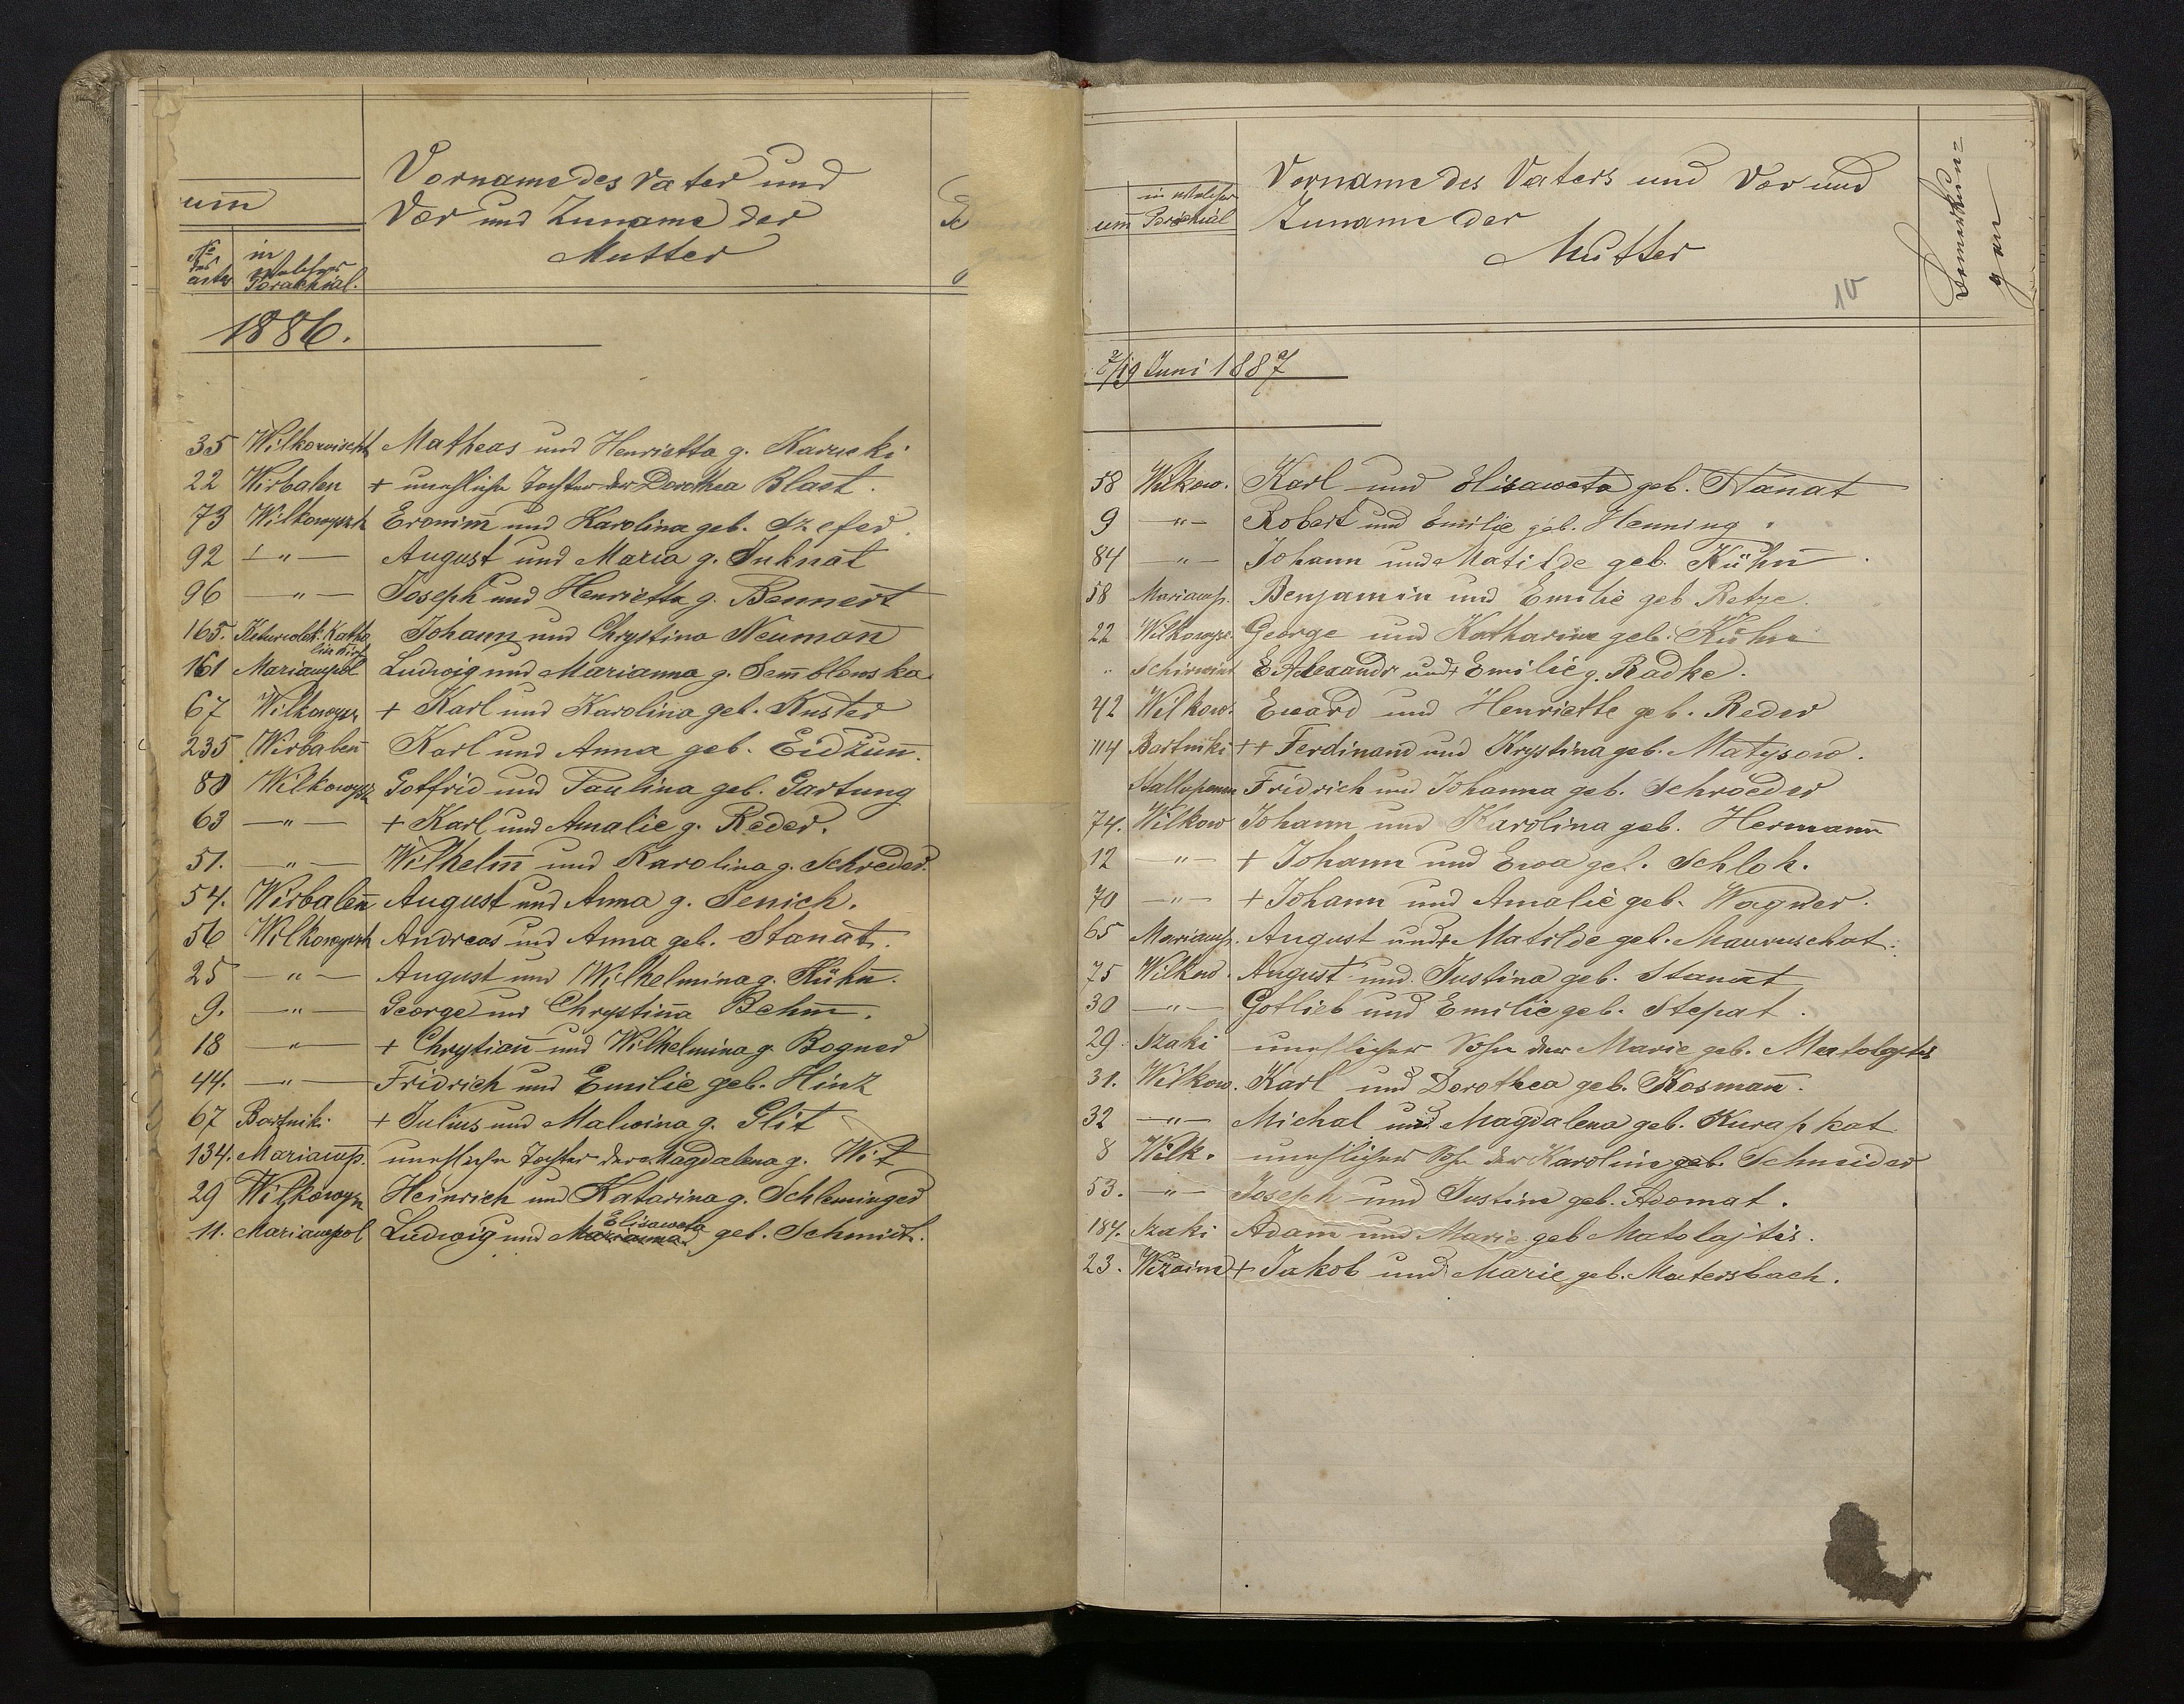 um̅
№ des actes
in welcher Parochial.
Vorname des Vater und
Vor und Zuname der
Mutter
1886.
35 Wilkowischk Matheas und Henrietta g. Karucki
22 Wirbalen + unehliche Tochter der Dorothea Blast.
73 Wilkowyszk Eronim̅ und Karolina geb. Szefer.
92 — " — August und Maria g. Juknat
96 — " — Joseph und Henrietta g. Bennert
165. Katho Johann und Chrystina Neuman̅
161 Mariampol Ludwig und Marianna g. Sem̅blowska
67 Wilkowysz + Karl und Karolina geb. Kuster
235 Wirbalen̅ Karl und Anna geb. Eidzun̅.
80 Wilkowysz Gotfrid und Paulina geb. Gartung
63 — " — + Karl und Amalie g. Reder.
51. — " — Wilhelm̅ und Karolina g. Schreder.
54. Wirbalen̅ August und Anna g. Jenich.
56 Wilkowyszk Andreas und Anna geb. Stanat.
25 — " — August und Wilhelmina g. Kühn̅.
9. — " — George und Chrystin̅a Behm̅.
18 — " — + Chrystian̅ und Wilhelmina g. Bogner
44. — " — Fridrich und Emilie geb. Hinz
67 Bartnik. + Julius und Malwina g. Glit
134. Mariamp. unehliche Tochter der Magdalena g. Wit
29 Wilkowysz Heinrich und Katarina g. Schleminger
Elisaweta
11. Mariampol Ludwig und Marianna geb. Schmidt.
um̅
in welcher Parochial
Vorname des Vaters und Vor und
Zuname der
Mutter
10
Bemerkun=
gen
/19 Juni 1887
58 Wilkow. Karl und Elisaweta geb. Stanat
9 — " — Robert und Emilie geb. Henning.
84 — " — Johann und Matilde geb. Kühn̅.
58 Mariamp. Benjamin und Emilie geb Retze.
22 Wilkowysz. George und Katharine geb. Kühn
" Schirwint Alexandr und + Emilie g. Radke.
42 Wilkow. Eward und Henriette geb. Reder
114 Bartniki ++ Ferdinand und Krystina geb. Matysow.
Stallupenen Fridrich und Johanna geb. Schroeder
74. Wilkow Johann und Karolina geb. Hermann̅
12 — " — + Johann und Ewa geb. Schloh.
70 — " — + Johann und Amalie geb. Wagner.
65 Mariamp. August und + Matilde geb. Mauruschat.
75 Wilkow. August und Justina geb. Stanat
30 — " — Gotlieb und Emilie geb. Stepat.
29. Szaki unehlicher Sohn der Marie geb. Matolajtis
31. Wilkow. Karl und Dorothea geb. Kosman̅.
32 — " — Michal und Magdalena geb. Kurapkat
8 Wilk. unehlicher Sohn der Karoline geb. Schneider
53. — " — Joseph und Justine geb. Adomat.
184. Szaki Adam̅ und Marie geb Matolajtis.
23. Wizaine + Jakob und Marie geb. Matersbach.